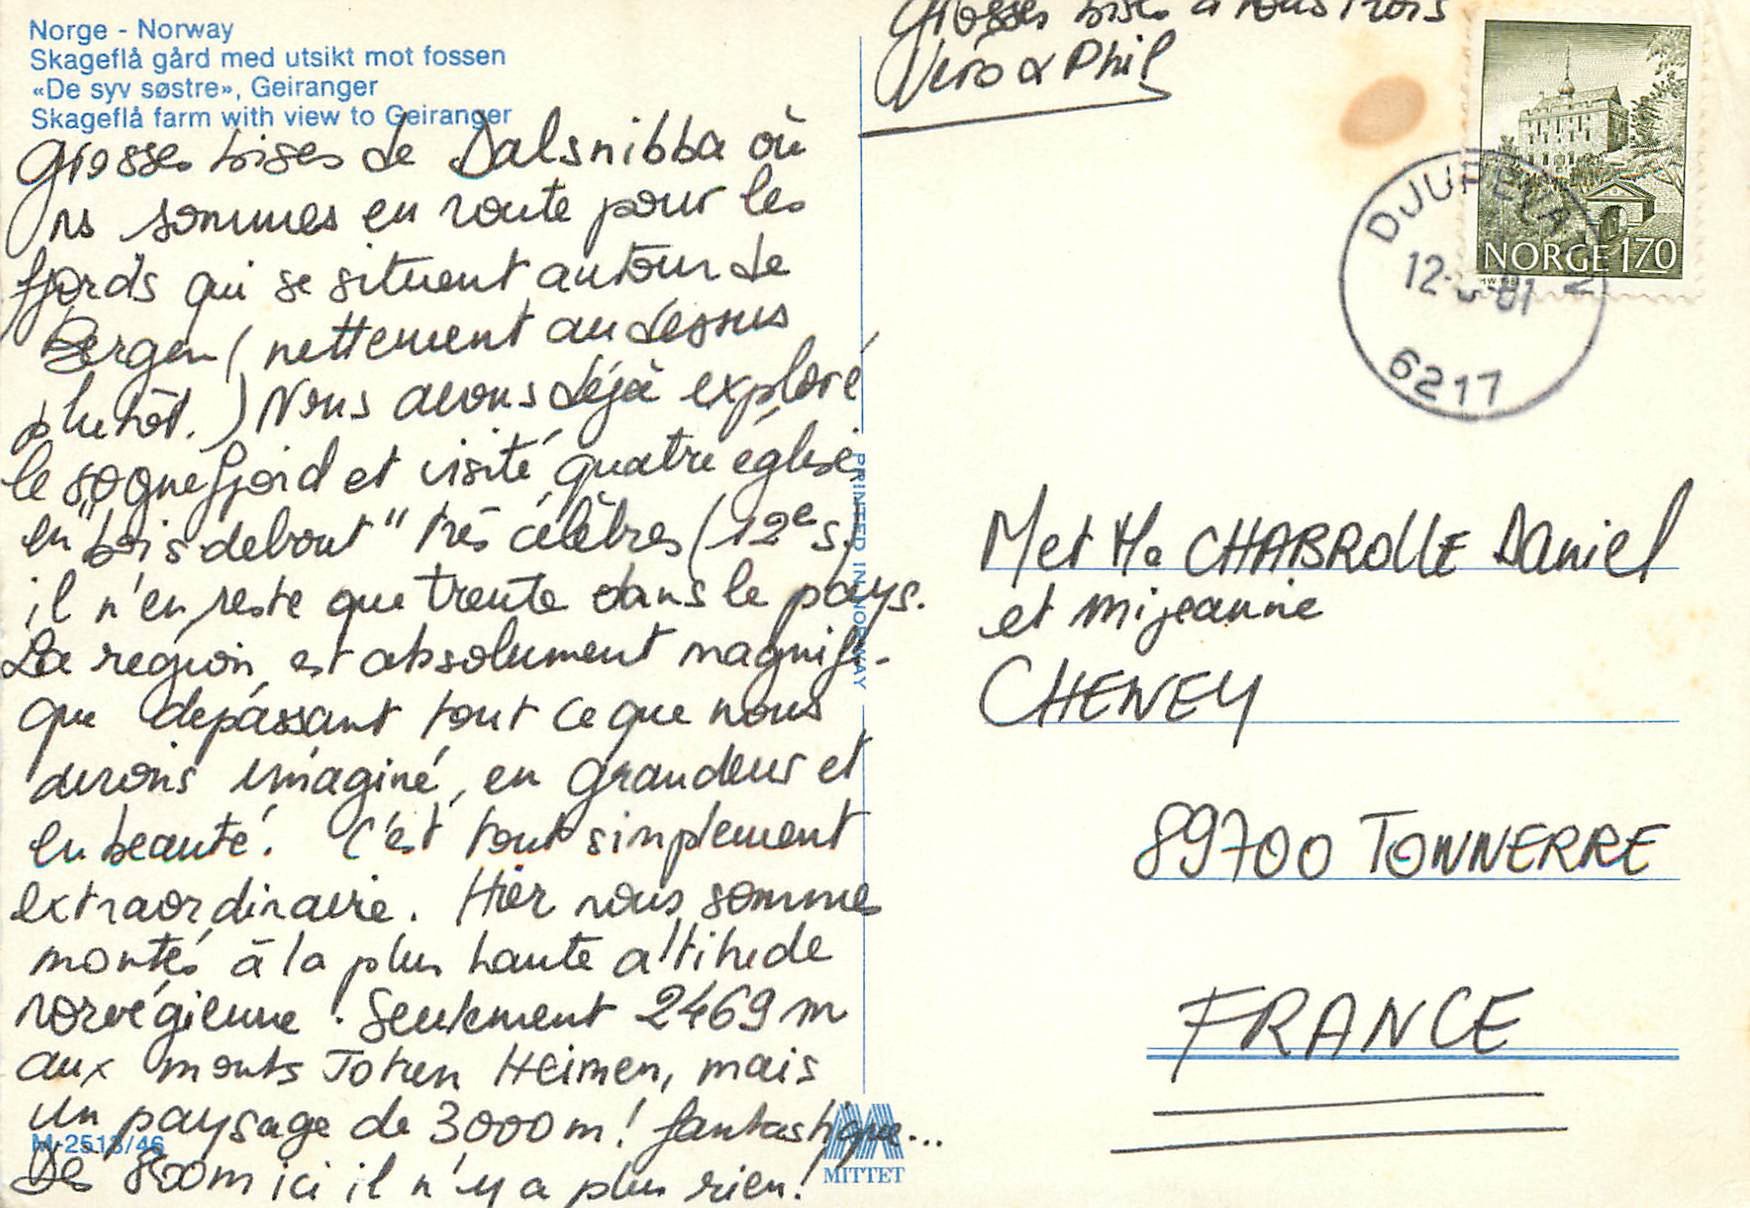 Norge - Norway
Skageflå gård med utsikt mot fossen
«De syv søstre», Geiranger
Skageflå farm with view to Geiranger
Grosses bises de Dalsnibba où
ns sommes en route pour les
fjords qui se situent autour de
Bergen (nettement au dessus
plutôt.) Nous avons déjà exploré
le sognefjord et visité quatre églises
en "bois debout" très célèbres (12e s)
il n'en reste que trente dans le pays.
La région est absolument magnifi-
que dépassant tout ce que nous
avions imaginé, en grandeur et
en beauté. C'est tout simplement
extraordinaire. Hier nous sommes
montés à la plus haute altitude
norvégienne. Seulement 2469 m
aux monts Jotun Heimen, mais
un paysage de 3000 m! fantastique...
Dès 800m ici il n'y a plus rien!
M-2513/46
Grosses bises à tous trois
Véro & Phil
PRINTED IN NORWAY
MITTET
NORGE 170
DJUPEVA
12- -81
6217
M et Me CHABROLLE Daniel
et mijeanne
CHENEY
89700 TONNERRE
FRANCE